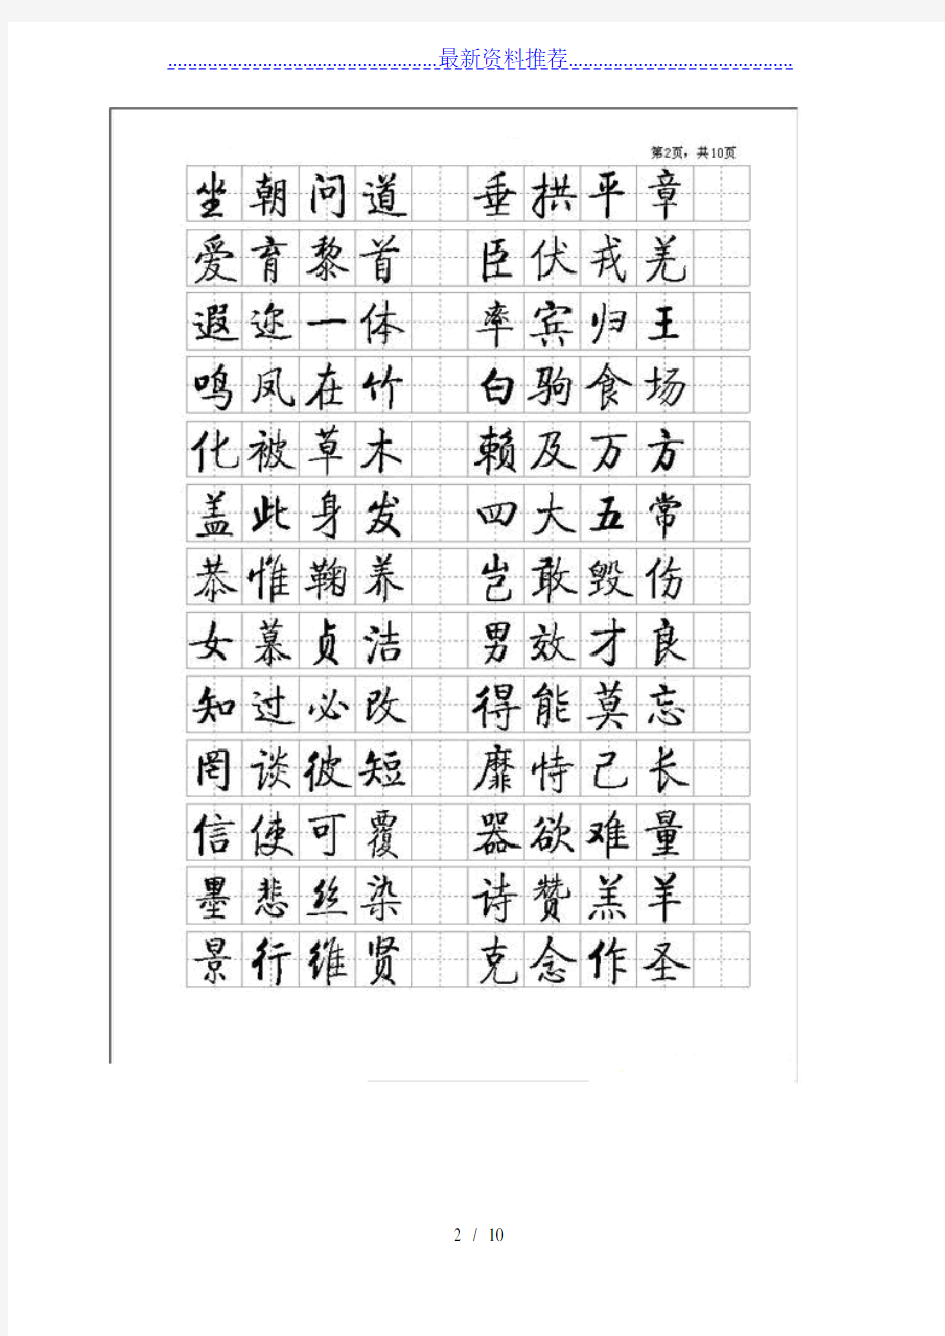 ................................................最新资料推荐........................................
第2页，共10页
坐朝问道 垂拱平章
爱育黎首 臣伏戎羌
遐迩一体 率宾归王
鸣凤在竹 白驹食场
化被草木 赖及万方
盖此身发 四大五常
恭惟鞠养 岂敢毁伤
女慕贞洁 男效才良
知过必改 得能莫忘
罔谈彼短 靡恃己长
信使可覆 器欲难量
墨悲丝染 诗赞羔羊
景行维贤 克念作圣
2 / 10